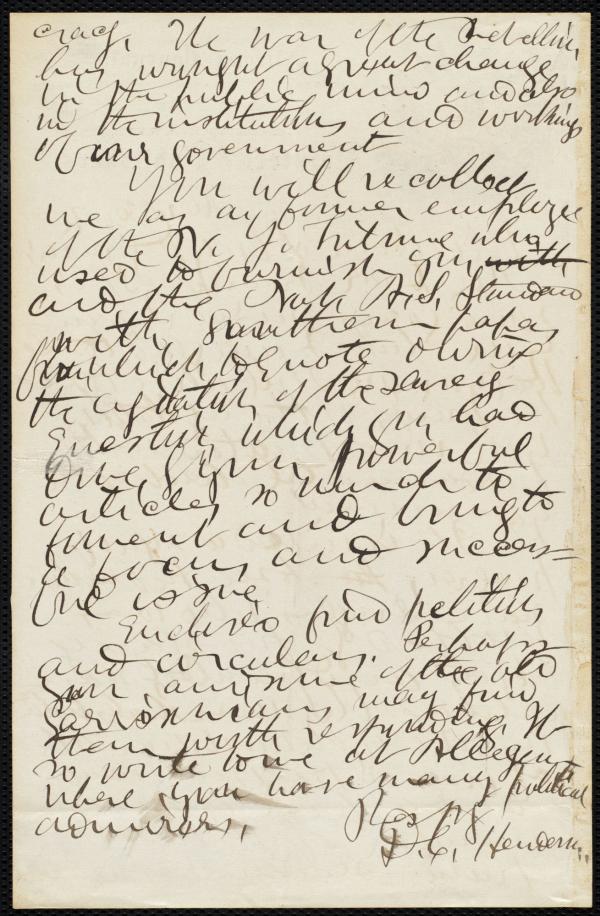 cracy. The war of the Rebellion
has wrought a great change
in the public mind and also
in the institutions and workings
of our government
You will recollect
me as a former employee
of the N. Y. Tribune who
used to furnish you with
and the A. S. Standard
with Southern papers
from which to quote during
the agitation of the slavery
question which you had
done by your powerful
articles so much to
foment and bring to
a focus and success=
ful issue
Enclosed find petitions
and circulars. Perhaps
you and some of the old
Garrisonians may find
them worth responding. If
so write to me at Allegan
where you have many political
admirers,
Respy
D. C. Henderson